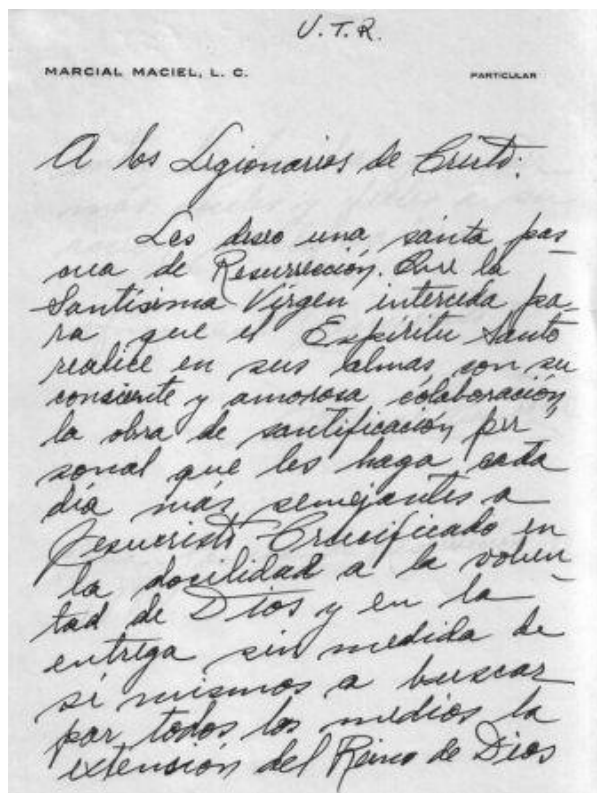 U.T.R.
MARCIAL MACIEL, L. C.
PARTICULAR
A los Legionarios de Cristo:
Les deseo una santa pas
cua de Resurrección. Que la
Santísima Virgen interceda pa-
ra que el Espíritu Santo
realice en sus almas, con su
consciente y amorosa colaboración,
la obra de santificación per
sonal que les haga cada
día más semejantes a
Jesucristo Crucificado en
la docilidad a la volun
tad de Dios y en la
entrega sin medida de
sí mismos a buscar
por todos los medios la
extensión del Reino de Dios